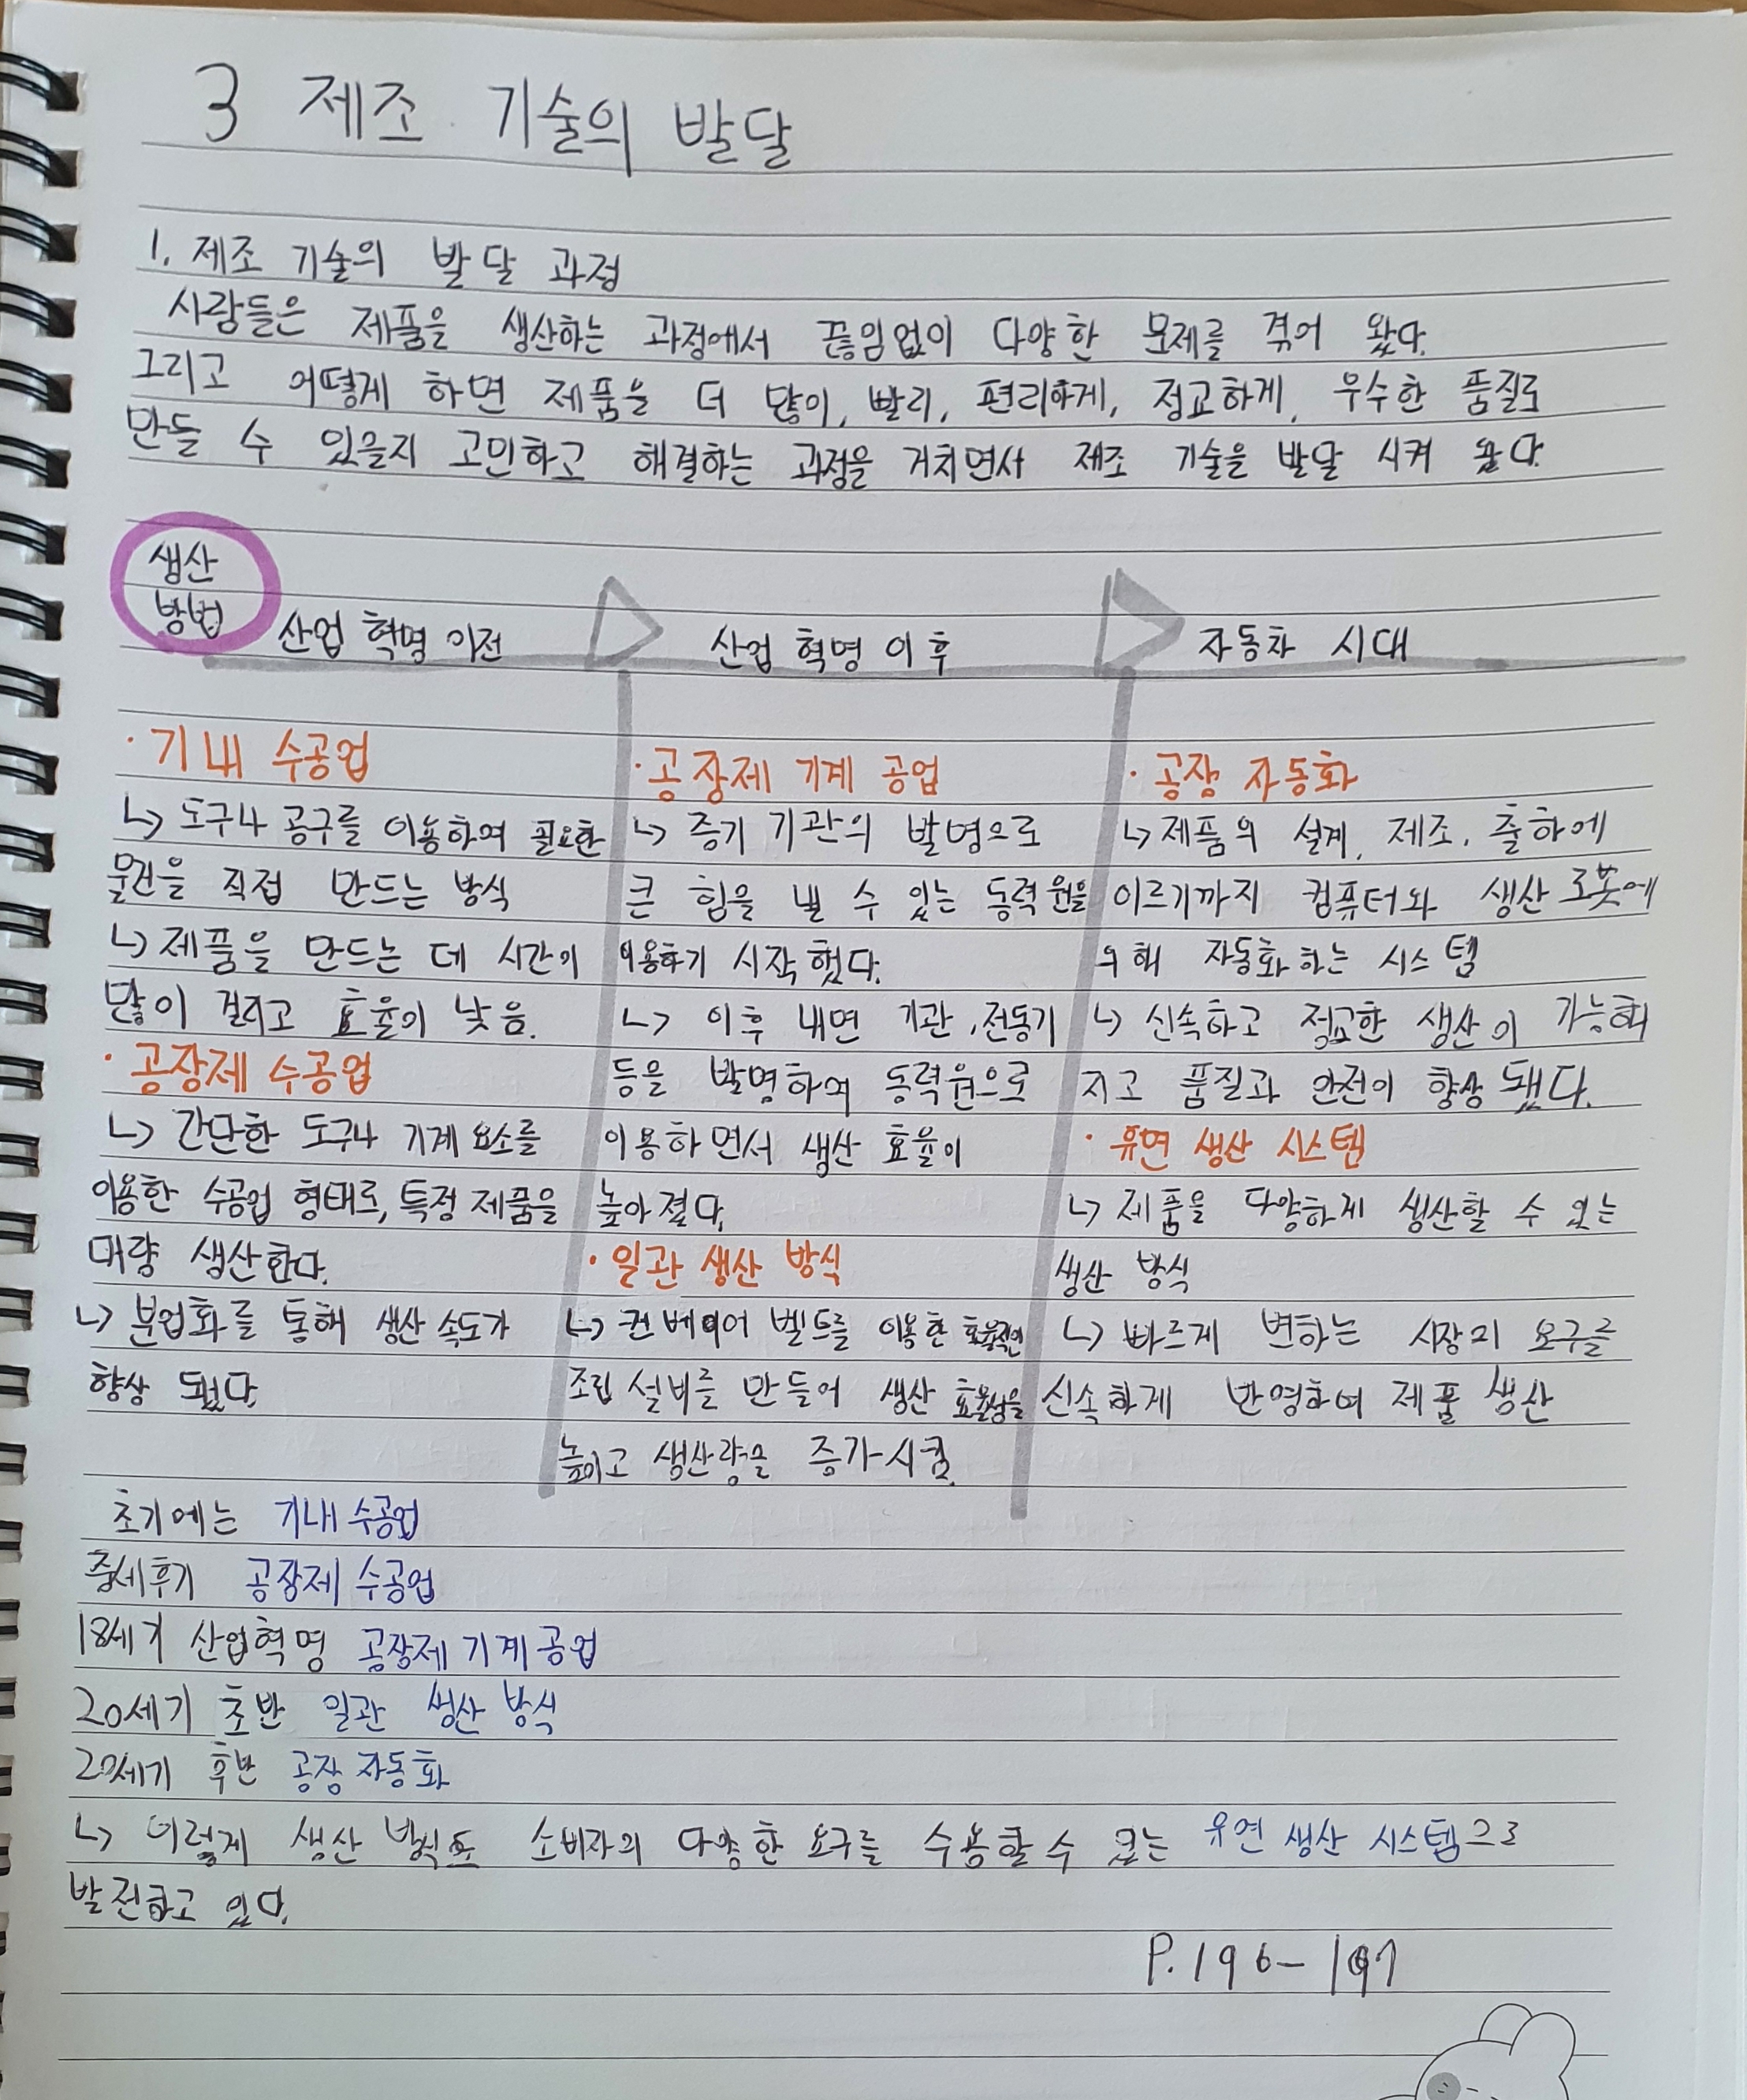 3 제조 기술의 발달
1. 제조 기술의 발달 과정
사람들은 제품을 생산하는 과정에서 끊임없이 다양한 문제를 겪어 왔다.
그리고 어떻게 하면 제품을 더 많이, 빨리, 편리하게, 정교하게, 우수한 품질로
만들 수 있을지 고민하고 해결하는 과정을 거치면서 제조 기술을 발달 시켜 왔다.
생산
방법
산업 혁명 이전
· 기내 수공업
↳ 도구나 공구를 이용하여 필요한
물건을 직접 만드는 방식
↳ 제품을 만드는 데 시간이
많이 걸리고 효율이 낮음.
· 공장제 수공업
↳ 간단한 도구나 기계 요소를
이용한 수공업 형태로, 특정 제품을
대량 생산한다.
↳ 분업화를 통해 생산 속도가
향상 됐다.
산업 혁명 이후
· 공장제 기계 공업
↳ 증기 기관의 발명으로
큰 힘을 낼 수 있는 동력원을
이용하기 시작했다.
↳ 이후 내면 기관, 전동기
등을 발명하여 동력원으로
이용하면서 생산 효율이
높아졌다.
· 일관 생산 방식
↳ 컨베이어 벨트를 이용한 효율적인
조립 설비를 만들어 생산 효율성을
높이고 생산량을 증가시킴.
자동차 시대
· 공장 자동화
↳ 제품의 설계, 제조, 출하에
이르기까지 컴퓨터와 생산 로봇에
의해 자동화하는 시스템
↳ 신속하고 정교한 생산이 가능해
지고 품질과 안전이 향상 됐다.
· 유연 생산 시스템
↳ 제품을 다양하게 생산할 수 있는
생산 방식
↳ 빠르게 변하는 시장의 요구를
신속하게 반영하여 제품 생산
초기에는 기내 수공업
중세후기 공장제 수공업
18세기 산업혁명 공장제 기계 공업
20세기 초반 일관 생산 방식
20세기 후반 공장 자동화
↳ 이렇게 생산 방식도 소비자의 다양한 요구를 수용할 수 있는 유연 생산 시스템으로
발전하고 있다.
P.196-197